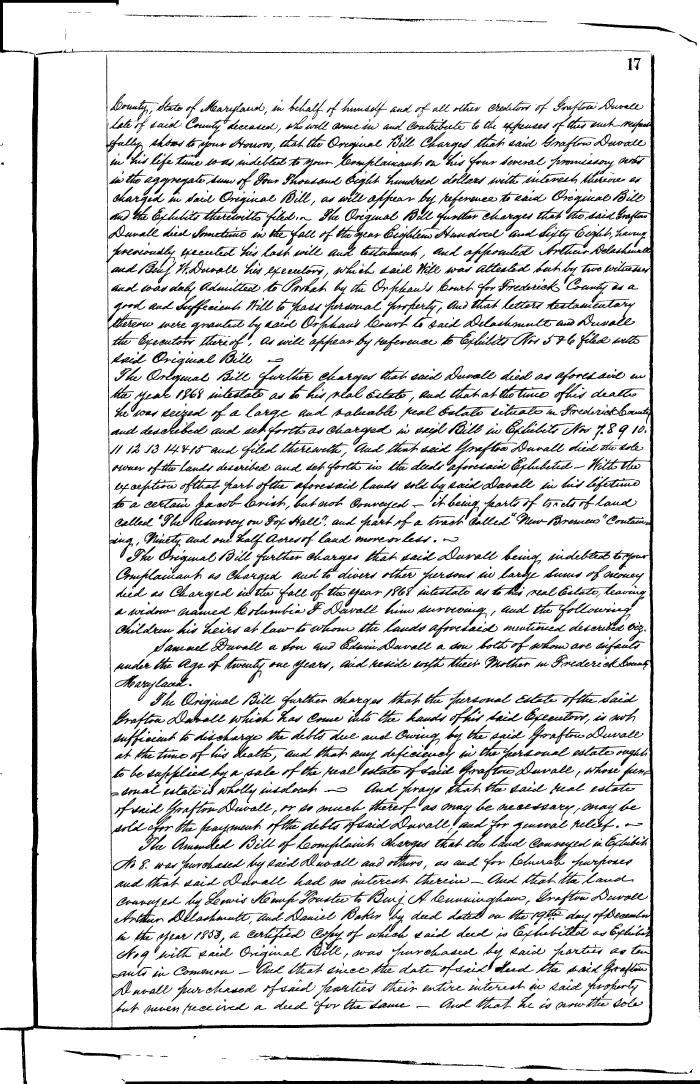 17
County, State of Maryland, in behalf of himself and of all other creditors of Grafton Duvall
late of said County deceased, who will come in and contribute to the expenses of this suit respect
=fully, shows to your Honors, that the Original Bill Charges that said Grafton Duvall
in his life time was indebted to your Complainant on his four several promissory notes
in the aggregate sum of Four Thousand Eight hundred dollars with interest thereon as
charged in said Original Bill, as will appear by reference to said Original Bill
and the Exhibits therewith filed. The Original Bill further charges that the said Grafton
Duvall died Sometime in the fall of the year Eighteen Hundred and Sixty Eight, having
previously executed his last will and testament, and appointed Arthur Delashmutt
and Benj W. Duvall his executors, which said Will was attested but by two witnesses
and was duly admitted to Probat by the Orphan's Court for Frederick County as a
good and sufficient Will to pass personal property, And that letters testamentary
thereon were granted by said Orphan's Court to said Delashmutt and Duvall
the Executors thereof. as will appear by reference to Exhibits Nos 5 & 6 filed with
said Original Bill —
The Original Bill further charges that said Duvall died as aforesaid in
the year 1868 intestate as to his real Estate, and that at the time of his death
he was seized of a large and valuable real Estate situate in Frederick County
and described and set forth as charged in said Bill in Exhibits Nos 7, 8 9 10.
11 12 13 14 & 15 and filed therewith, And that said Grafton Duvall died the sole
owner of the lands described and set forth in the deeds aforesaid Exhibited – With the
exception of that part of the aforesaid lands sold by said Duvall in his lifetime
to a certain Jacob Crist, but not Conveyed – it being parts of tracts of land
called "The Resurvey on Fox Hall", and part of a tract called "New Bremen" Contain=
ing, Ninety and one half Acres of land more or less. —
The Original Bill further charges that said Duvall being indebted to your
Complainant as Charged and to divers other persons in large sums of money
died as Charged in the fall of the year 1868 intestate as to his real Estate, leaving
a widow named Columbia F Duvall him surviving, and the following
children his heirs at law to whom the lands aforesaid mentioned descended viz.
Samuel Duvall a son and Edwin Duvall a son both of whom are infants
under the Age of twenty one years, and reside with their Mother in Frederick County
Maryland.
The Original Bill further charges that the personal Estate of the Said
Grafton Duvall which has come into the hands of his said Executors, is not
sufficient to discharge the debts due and owing, by the said Grafton Duvall
at the time of his death, and that any deficiency in the personal estate ought
to be supplied by a sale of the real estate of said Grafton Duvall, whose per=
=sonal estate is wholly insolvent — And prays that the said real estate
of said Grafton Duvall, or so much thereof as may be necessary, may be
sold for the payment of the debts of said Duvall, and for general relief. —
The Amended Bill of Complaint charges that the land conveyed in Exhibit
No 8. was purchased by said Duvall and others, as and for Church purposes
and that said Duvall had no interest therein – And that the land
conveyed by Lewis Kemp Trustee to Benj A Cunningham, Grafton Duvall
Arthur Delashmutt, and Daniel Baker by deed dated on the 19th day of December
in the year 1853, a certified Copy of which said deed is Exhibited as Exhibit
No 9 with said Original Bill, was purchased by said parties as ten
=ants in Common – And that since the date of said deed the said Grafton
Duvall purchased of said parties their entire interest in said property
but never received a deed for the same – And that he is now the sole